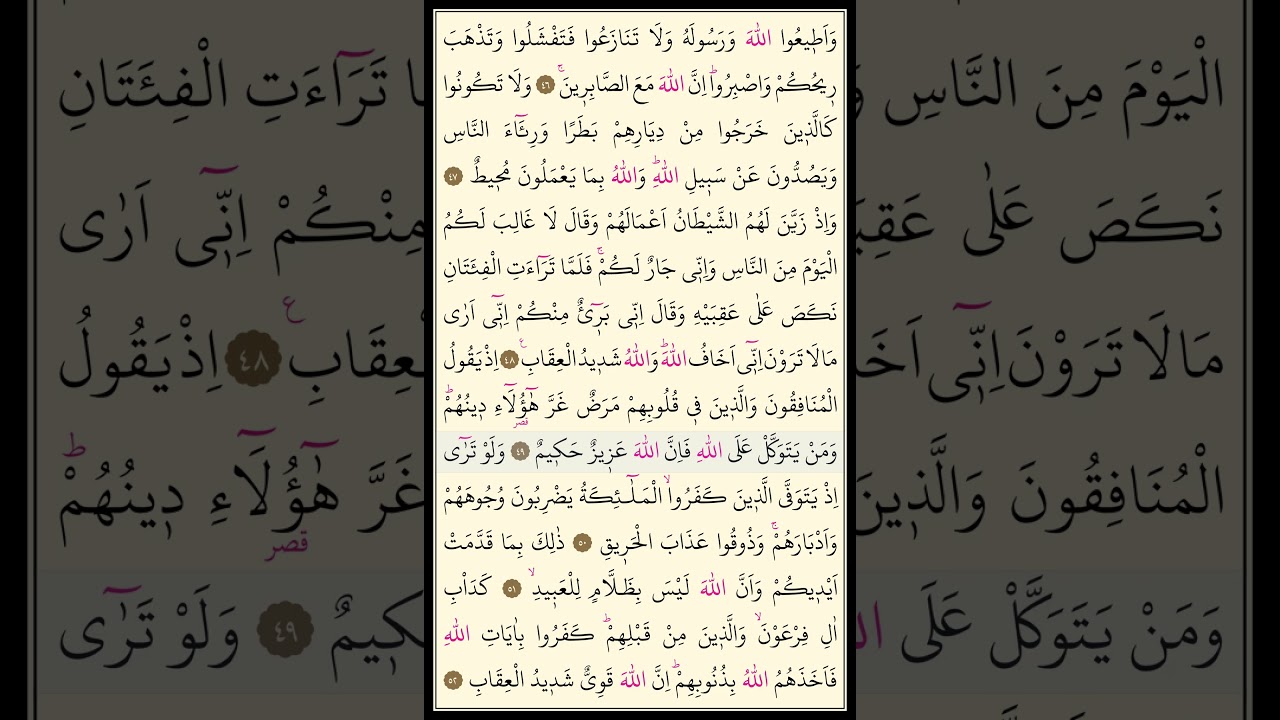 وَاَطٖيعُوا اللّٰهَ وَرَسُولَهُ وَلَا تَنَازَعُوا فَتَفْشَلُوا وَتَذْهَبَ
رٖيحُكُمْ وَاصْبِرُواؕ اِنَّ اللّٰهَ مَعَ الصَّابِرٖينَۚ ٤٦ وَلَا تَكُونُوا
كَالَّذٖينَ خَرَجُوا مِنْ دِيَارِهِمْ بَطَرًا وَرِئَٓاءَ النَّاسِ
وَيَصُدُّونَ عَنْ سَبٖيلِ اللّٰهِؕ وَاللّٰهُ بِمَا يَعْمَلُونَ مُحٖيطٌ ٤٧
وَاِذْ زَيَّنَ لَهُمُ الشَّيْطَانُ اَعْمَالَهُمْ وَقَالَ لَا غَالِبَ لَكُمُ
الْيَوْمَ مِنَ النَّاسِ وَاِنّٖى جَارٌ لَكُمْۚ فَلَمَّا تَرَٓاءَتِ الْفِئَتَانِ
نَكَصَ عَلٰى عَقِبَيْهِ وَقَالَ اِنّٖى بَرٖٓئٌ مِنْكُمْ اِنّٖٓى اَرٰى
مَا لَا تَرَوْنَ اِنّٖٓى اَخَافُ اللّٰهَؕ وَاللّٰهُ شَدٖيدُ الْعِقَابِ ع ٤٨ اِذْ يَقُولُ
الْمُنَافِقُونَ وَالَّذٖينَ فٖى قُلُوبِهِمْ مَرَضٌ غَرَّ هٰٓؤُلَٓاءِ دٖينُهُمْؕ
قصر
وَمَنْ يَتَوَكَّلْ عَلَى اللّٰهِ فَاِنَّ اللّٰهَ عَزٖيزٌ حَكٖيمٌ ٤٩ وَلَوْ تَرٰٓى
اِذْ يَتَوَفَّى الَّذٖينَ كَفَرُواۙ الْمَلٰٓئِكَةُ يَضْرِبُونَ وُجُوهَهُمْ
وَاَدْبَارَهُمْۚ وَذُوقُوا عَذَابَ الْحَرٖيقِ ٥٠ ذٰلِكَ بِمَا قَدَّمَتْ
اَيْدٖيكُمْ وَاَنَّ اللّٰهَ لَيْسَ بِظَلَّامٍ لِلْعَبٖيدِۙ ٥١ كَدَاْبِ
اٰلِ فِرْعَوْنَۙ وَالَّذٖينَ مِنْ قَبْلِهِمْؕ كَفَرُوا بِاٰيَاتِ اللّٰهِ
فَاَخَذَهُمُ اللّٰهُ بِذُنُوبِهِمْؕ اِنَّ اللّٰهَ قَوِىٌّ شَدٖيدُ الْعِقَابِ ٥٢